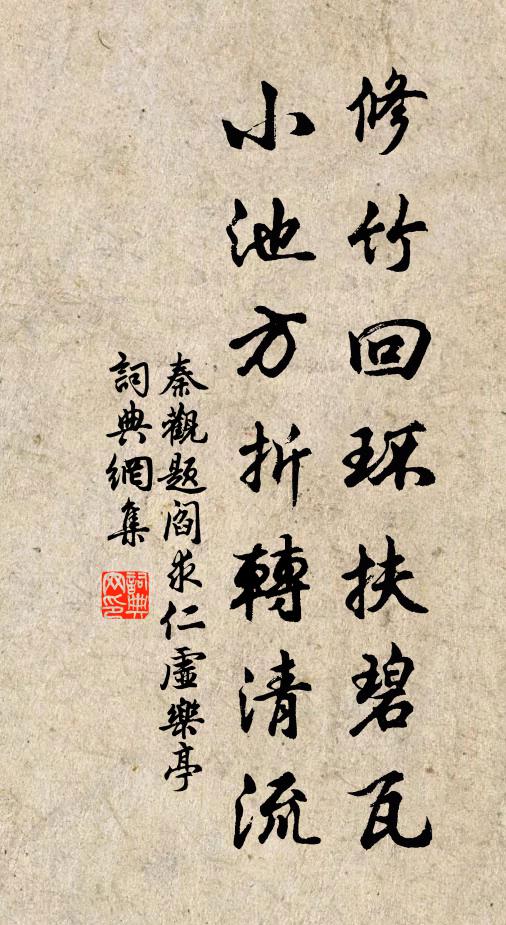 修竹回环扶碧瓦
小池方折轉清流
秦觀题阎求仁虛樂亭
詞典網集
詞典网印